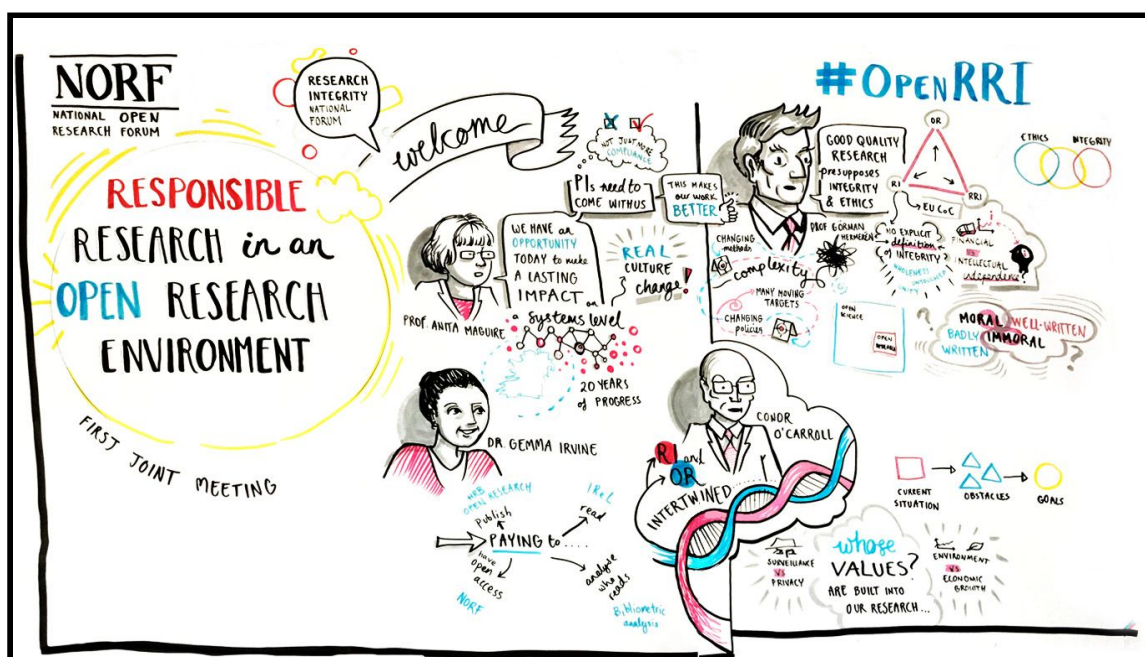 NORF
NATIONAL OPEN
RESEARCH FORUM
RESEARCH
INTEGRITY
NATIONAL
FORUM
welcome
RESPONSIBLE
RESEARCH in an
OPEN RESEARCH
ENVIRONMENT
FIRST JOINT MEETING
NOT JUST MORE
COMPLIANCE
PIs need to
COME WITH US
THIS MAKES
our WORK
BETTER
WE HAVE an
OPPORTUNITY
TODAY to make
A LASTING
IMPACT on
a systems level
PROF. ANITA MAGUIRE
REAL
CULTURE
change!
20 YEARS
of PROGRESS
DR. GEMMA IRVINE
HRB
OPEN RESEARCH
Publish
IReL
read
PAYING to....
have
open
access
NORF
analyse
who
reads
Bibliometric
analysis
#OPENRRI
GOOD QUALITY
RESEARCH
presupposes
INTEGRITY
& ETHICS
PROF GÖRAN
HERMERÉN
OR
RI
RRI
EU CoC
ETHICS
INTEGRITY
CHANGING
methods
complexity
MANY MOVING
TARGETS
CHANGING
policies
NO EXPLICIT
definition
of INTEGRITY
WHOLENESS
UNITY
FINANCIAL
vs
INTELLECTUAL
independence
OPEN
SCIENCE
OPEN
RESEARCH
?
MORAL WELL-WRITTEN
BADLY IMMORAL
WRITTEN
?
CONOR
O'CARROLL
RI and
OR
INTERTWINED......
CURRENT
SITUATION
OBSTACLES
GOALS
SURVEILLANCE
VS
PRIVACY
whose
VALUES?
ARE BUILT INTO
OUR RESEARCH...
ENVIRONMENT
VS
ECONOMIC
GROWTH